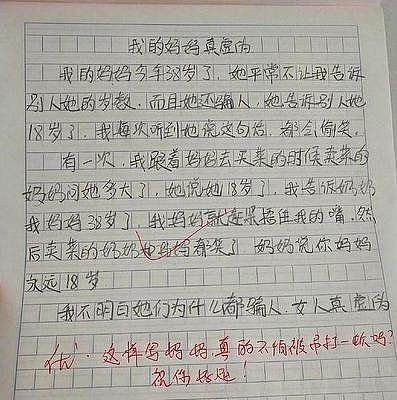 我的妈妈真虚伪
我的妈妈今年38岁了，她平常不让我告诉
别人她的岁数，而且她还骗人，她告诉别人她
18岁了，我每次听到她说这句话，都会偷笑。
有一次，我跟着妈妈去买菜的时候卖菜的
奶奶问她多大了，她说她18岁了，我告诉奶奶
我妈妈38岁了，我妈妈就赶紧捂住我的嘴，然
后卖菜的奶奶她妈妈都笑了，妈妈说你妈妈
永远18岁
我不明白她们为什么都骗人，女人真虚伪
优·这样写妈妈，真的不怕被吊打一顿吗？
祝你好运！